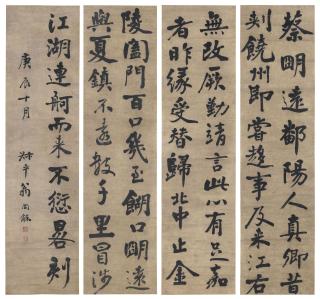 蔡明遠鄱陽人真卿昔
刺饒州即嘗趨事及來江右
無改厥勤靖言此心有足嘉
者昨緣受替歸北中止金
陵闔門百口幾至餬口明遠
與夏鎮不遠數千里冒涉
江湖連舸而來不愆晷刻
庚辰十月
叔平翁同龢